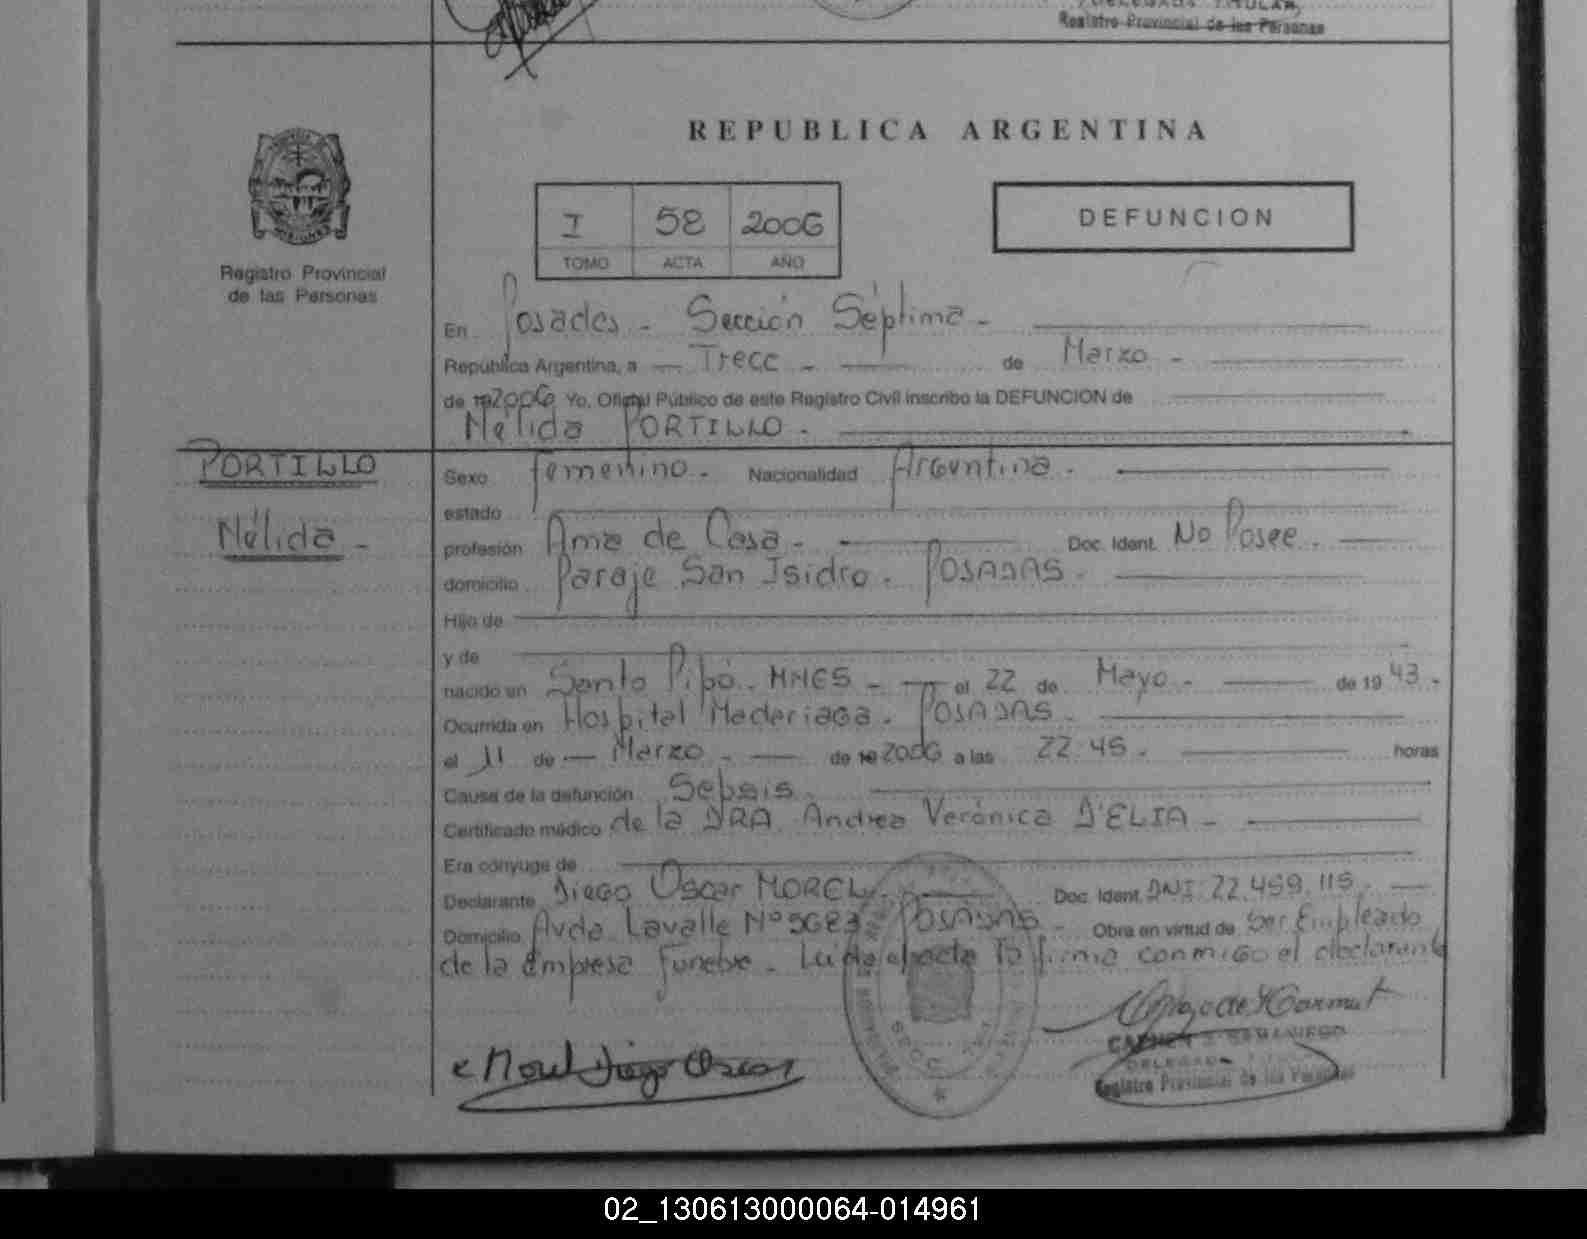 Registro Provincial de las Personas
REPUBLICA ARGENTINA
I 58 2006
TOMO ACTA AÑO
DEFUNCION
Registro Provincial
de las Personas
En Posadas - Sección Séptima -
República Argentina, a — Trece - de Marzo -
de 2006 Yo, Oficial Público de este Registro Civil inscribo la DEFUNCION de
Nélida PORTILLO -
PORTILLO
Nélida -
Sexo femenino - Nacionalidad Argentina -
estado
profesión Ama de Casa - Doc. Ident. No Posee -
domicilio Paraje San Isidro. POSADAS -
Hijo de
y de
nacido en Santo Pipó. MNES - el 22 de Mayo - de 1943 -
Ocurrida en Hospital Madariaga. POSADAS -
el 11 de — Marzo - de 2006 a las 22:45 - horas
Causa de la defunción Sepsis
Certificado médico de la DRA Andrea Verónica D'ELIA -
Era cónyuge de
Declarante Diego Oscar MOREL Doc. Ident. DNI 22.459.115 -
Domicilio Avda Lavalle Nº 5683 POSADAS - Obra en virtud de Ser Empleado
de la Empresa Funebre - Leida el acta la firma conmigo el declarante
Morel Diego Oscar
SAMANIEGO
Registro Provincial de las Personas
02_130613000064-014961